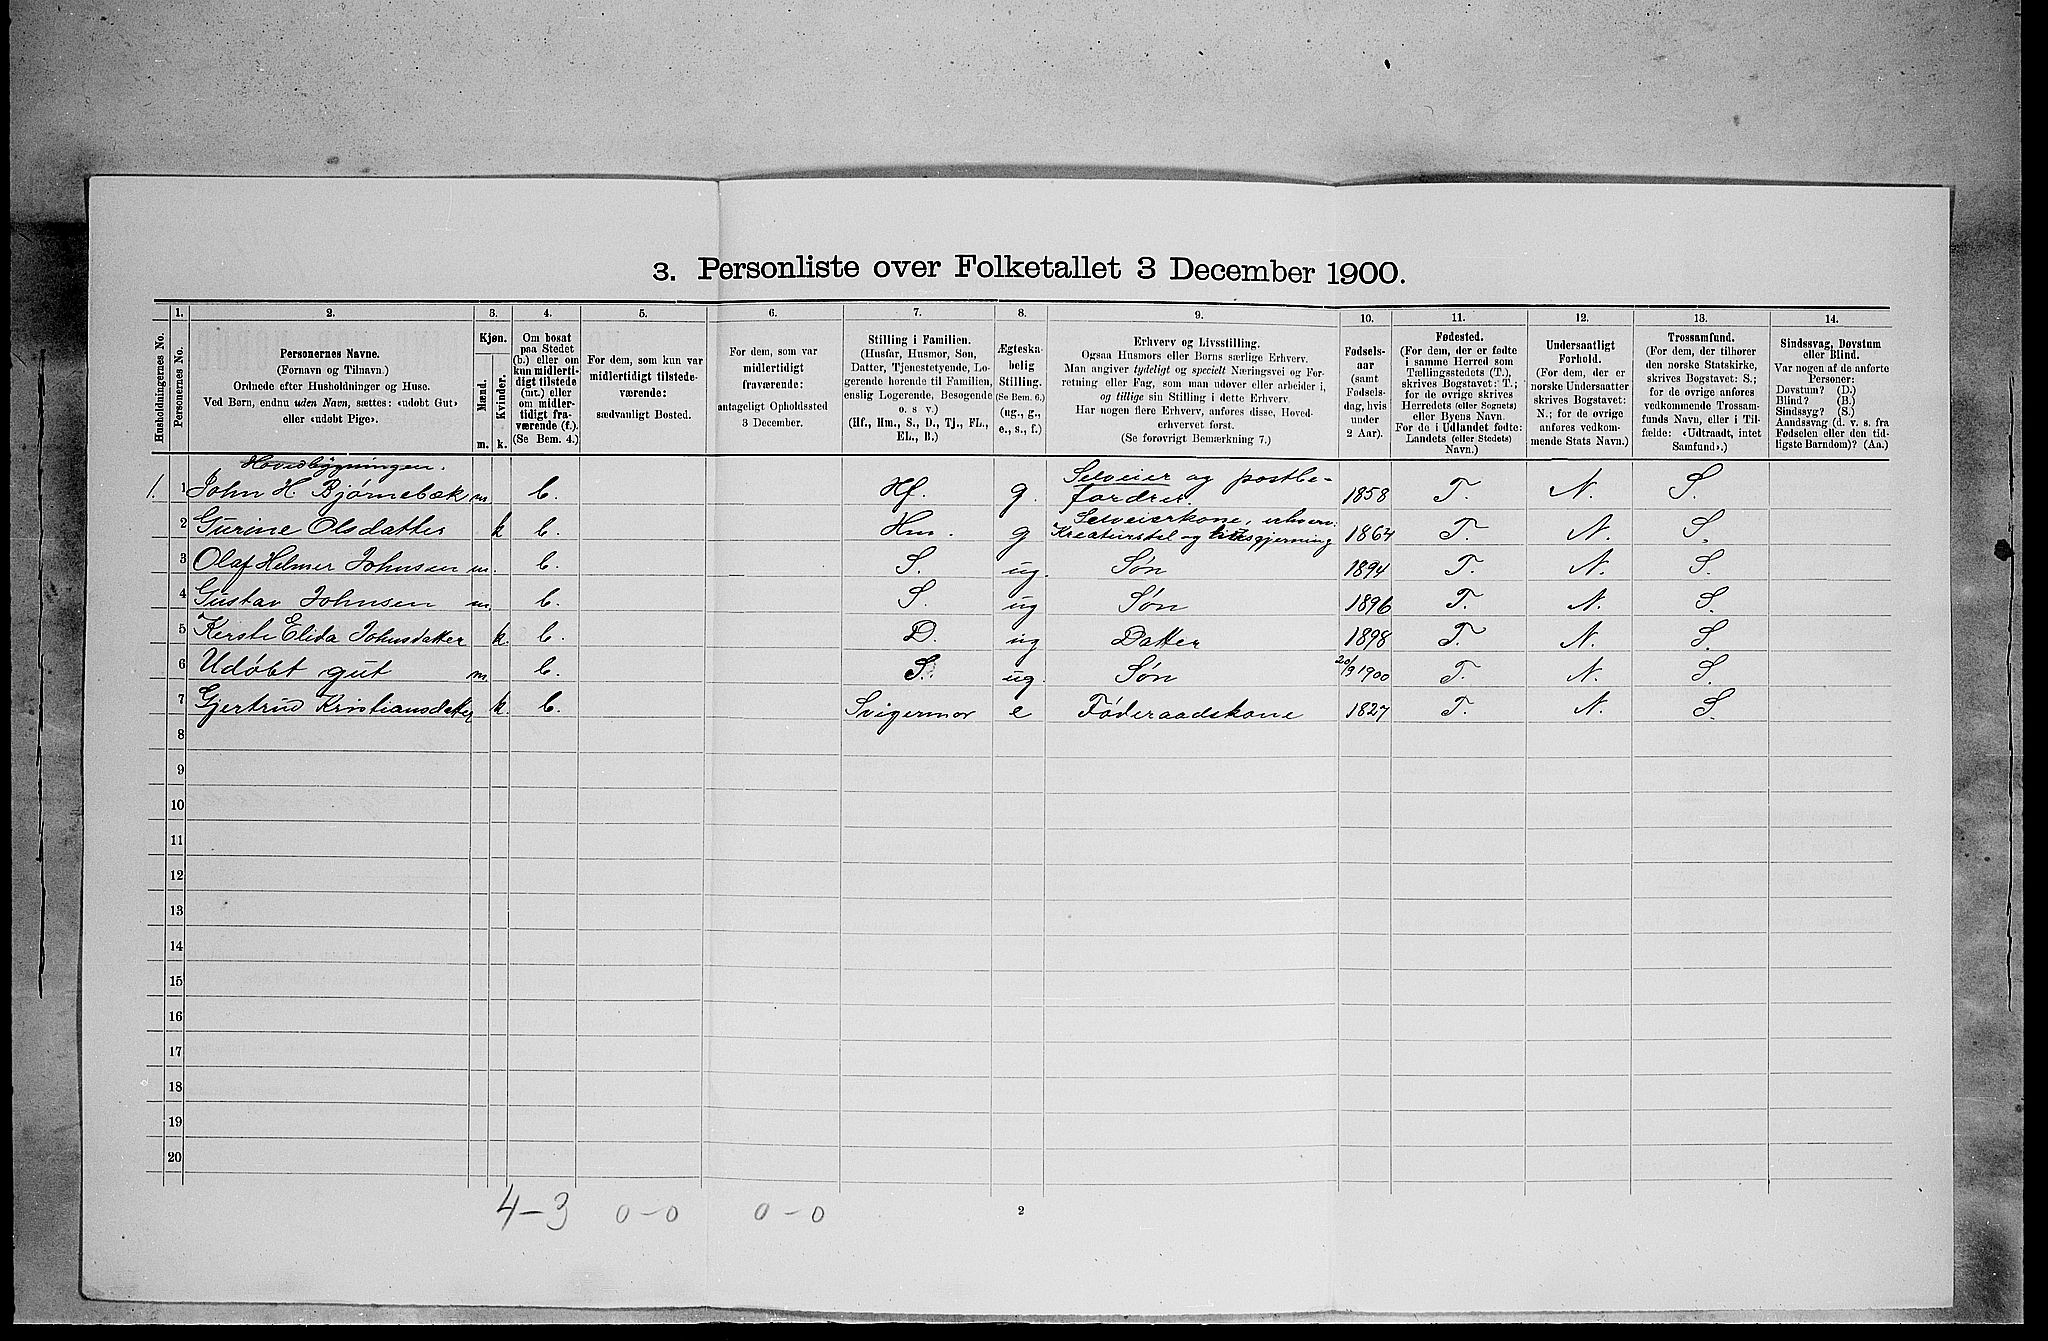 3. Personliste over Folketallet 3 December 1900.
Husholdningernes No.
1.
Personernes No.
2.
Personernes Navne.
(Fornavn og Tilnavn.)
Ordnede efter Husholdninger og Huse.
Ved Børn, endnu uden Navn, sættes: «udøbt Gut»
eller «udøbt Pige».
3.
Kjøn.
Mænd.
Kvinder.
m. k.
4.
Om bosat
paa Stedet
(b.) eller om
kun midlerti-
digt tilstede
(mt.) eller
om midler-
tidigt fra-
værende (f.).
(Se Bem. 4.)
5.
For dem, som kun var
midlertidigt tilstede-
værende:
sædvanligt Bosted.
6.
For dem, som var
midlertidigt
fraværende:
antageligt Opholdssted
3 December.
7.
Stilling i Familien.
(Husfar, Husmor, Søn,
Datter, Tjenestetyende, Lo-
gerende hørende til Familien,
enslig Logerende, Besøgende
o. s v.)
(Hf., Hm., S., D., Tj., FL.,
EL., B.)
8.
Ægteska-
belig
Stilling.
(Se Bem. 6.)
(ug., g.,
e., s., f.)
9.
Erhverv og Livsstilling.
Ogsaa Husmors eller Børns særlige Erhverv.
Man angiver tydeligt og specielt Næringsvei og For-
retning eller Fag, som man udøver eller arbeider i,
og tillige sin Stilling i dette Erhverv.
Har nogen flere Erhverv, anføres disse, Hoved-
erhvervet først.
(Se forøvrigt Bemærkning 7.)
10.
Fødsels-
aar
(samt
Fødsels-
dag, hvis
under
2 Aar).
11.
Fødested.
(For dem, der er fødte
i samme Herred som
Tællingsstedets (T.),
skrives Bogstavet: T.;
for de øvrige skrives
Herredets (eller Sognets)
eller Byens Navn.
For de i Udlandet fødte:
Landets (eller Stedets)
Navn.)
12.
Undersaatligt
Forhold.
(For dem, der er
norske Undersaatter
skrives Bogstavet:
N.; for de øvrige
anføres vedkom-
mende Stats Navn.)
13.
Trossamfund.
(For dem, der tilhører
den norske Statskirke,
skrives Bogstavet: S.;
for de øvrige anføres
vedkommende Trossam-
funds Navn, eller i Til-
fælde: «Udtraadt, intet
Samfund».)
14.
Sindssvag, Døvstum
eller Blind.
Var nogen af de anførte
Personer:
Døvstum? (D.)
Blind? (B.)
Sindssyg? (S.)
Aandssvag (d. v. s. fra
Fødselen eller den tid-
ligste Barndom)? (Aa.)
Hovedbygningen.
1. 1 John H. Bjørnebæk m b. Hf. g. Selveier og postbe-
fordrer. 1858 T. N. S.
2 Gurine Olsdatter k b. Hm. g Selveierkone, erhverv:
Kreaturstel og husgjerning 1864 T. N. S.
3 Olaf Helmer Johnsen m. b. S. ug. Søn 1894 T. N. S.
4 Gustav Johnsen m. b. S. ug Søn 1896 T. N. S.
5 Kersti Elida Johnsdatter k. b. D. ug Datter 1898 T. N. S.
6 Udøbt gut m. b. S. ug. Søn 20/9 1900 T. N. S.
7 Gjertrud Kristiansdatter k. b. Svigermor e Føderaadskone 1827 T. N. S.
8
9
10
11
12
13
14
15
16
17
18
19
20
4-3 0-0 0-0
2